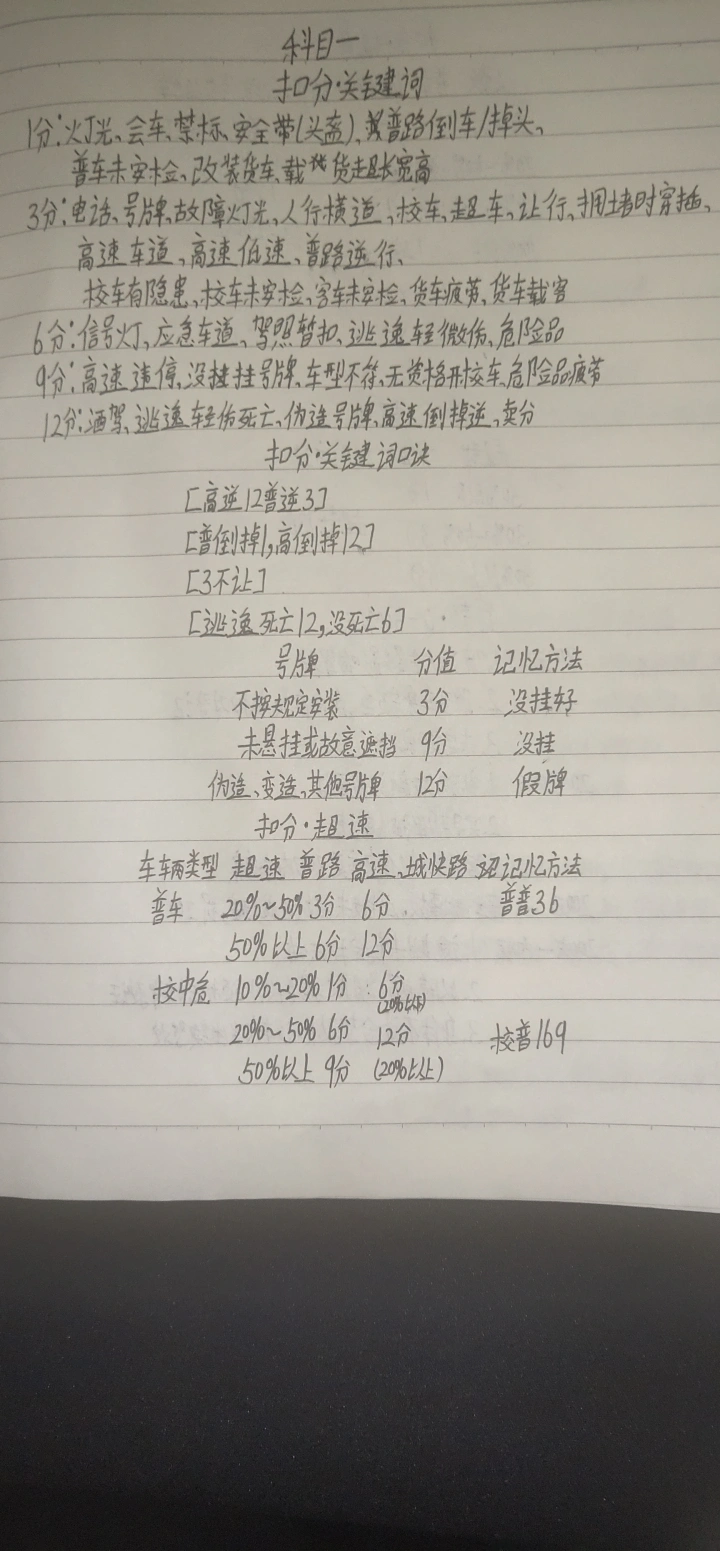 科目一
扣分·关键词
1分:灯光、会车、禁标、安全带(头盔)、普路倒车/掉头、
普车未安检、改装货车、载货超长宽高
3分:电话、号牌、故障灯光、人行横道、校车、超车、让行、拥堵时穿插、
高速车道、高速低速、普路逆行、
校车有隐患、校车未安检、客车未安检、货车疲劳、货车载客
6分:信号灯、应急车道、驾照暂扣、逃逸轻微伤、危险品
9分:高速违停、没挂号牌、车型不符、无资格开校车、危险品疲劳
12分:酒驾、逃逸轻伤死亡、伪造号牌、高速倒掉逆、卖分
扣分·关键词口诀
[高逆12普逆3]
[普倒掉1,高倒掉12]
[3不让]
[逃逸死亡12,没死亡6]
号牌 分值 记忆方法
不按规定安装 3分 没挂好
未悬挂或故意遮挡 9分 没挂
伪造、变造、其他号牌 12分 假牌
扣分·超速
车辆类型 超速 普路 高速、城快路 记忆方法
普车 20%~50% 3分 6分 普普36
50%以上 6分 12分
校中危 10%~20% 1分 6分
(20%以下)
20%~50% 6分 12分 校普169
50%以上 9分 (20%以上)